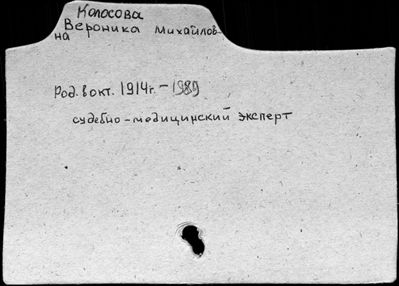 Колосова
Вероника Михайлов-
на
Род. в окт. 1914г. - 1989
судебно-медицинский эксперт